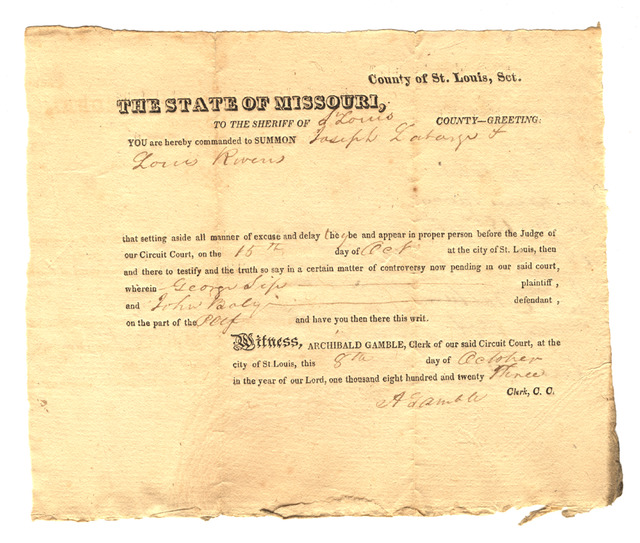 County of St. Louis, Sct.
THE STATE OF MISSOURI,
TO THE SHERIFF OF St Louis COUNTY—GREETING:
YOU are hereby commanded to SUMMON Joseph Labarge &
Louis
that setting aside all manner of excuse and delay they be and appear in proper person before the Judge of
our Circuit Court, on the 15th day of Oct at the city of St. Louis, then
and there to testify and the truth so say in a certain matter of controversy now pending in our said court,
wherein George plaintiff,
and John defendant,
on the part of the Plff and have you then there this writ.
Witness, ARCHIBALD GAMBLE, Clerk of our said Circuit Court, at the
city of St. Louis, this 8th day of October
in the year of our Lord, one thousand eight hundred and twenty Three
A Gamble Clerk, C. C.